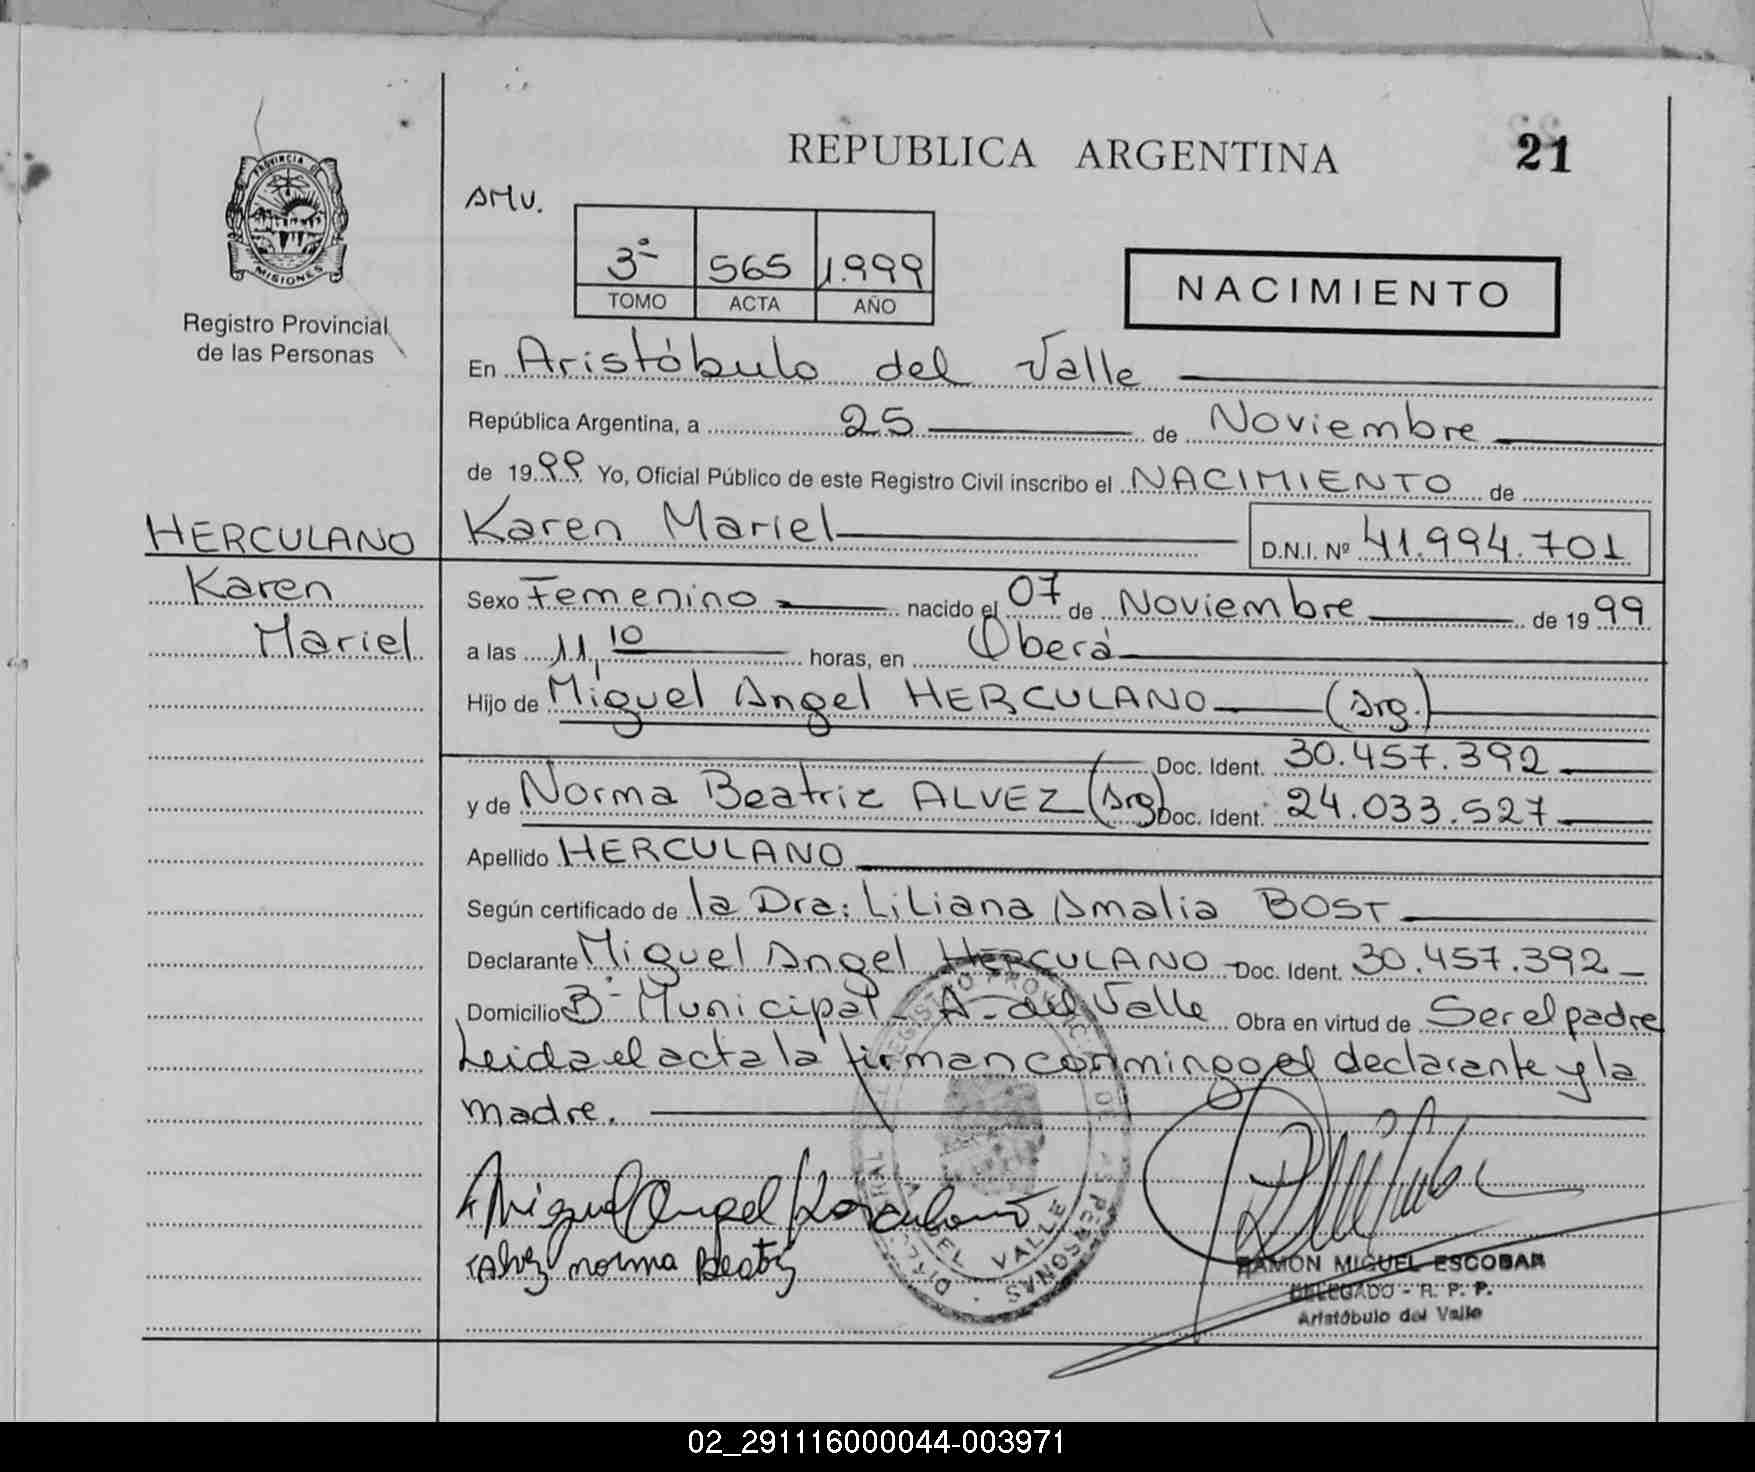 REPUBLICA ARGENTINA 21
PROVINCIA DE
MISIONES
Registro Provincial
de las Personas
AMV.
3º 565 1.999
TOMO ACTA AÑO
NACIMIENTO
En Aristóbulo del Valle
República Argentina, a 25 de Noviembre
de 1999 Yo, Oficial Público de este Registro Civil inscribo el NACIMIENTO de
HERCULANO
Karen
Mariel
Karen Mariel D.N.I. Nº 41.994.701
Sexo Femenino nacido el 07 de Noviembre de 1999
a las 11,10 horas, en Oberá
Hijo de Miguel Angel HERCULANO (Arg.)
Doc. Ident. 30.457.392
y de Norma Beatriz ALVEZ (Arg) Doc. Ident. 24.033.527
Apellido HERCULANO
Según certificado de la Dra: Liliana Amalia BOST
Declarante Miguel Angel HERCULANO Doc. Ident. 30.457.392
Domicilio Bº Municipal - A. del Valle Obra en virtud de Ser el padre
Leida el acta la firman conmingo el declarante y la
madre.
Miguel Angel Herculano
Alvez norma Beatriz
REGISTRO PROVINCIAL DE LAS PERSONAS
DEL VALLE
RAMON MIGUEL ESCOBAR
DELEGADO - R. P. P.
Aristóbulo del Valle
02_291116000044-003971